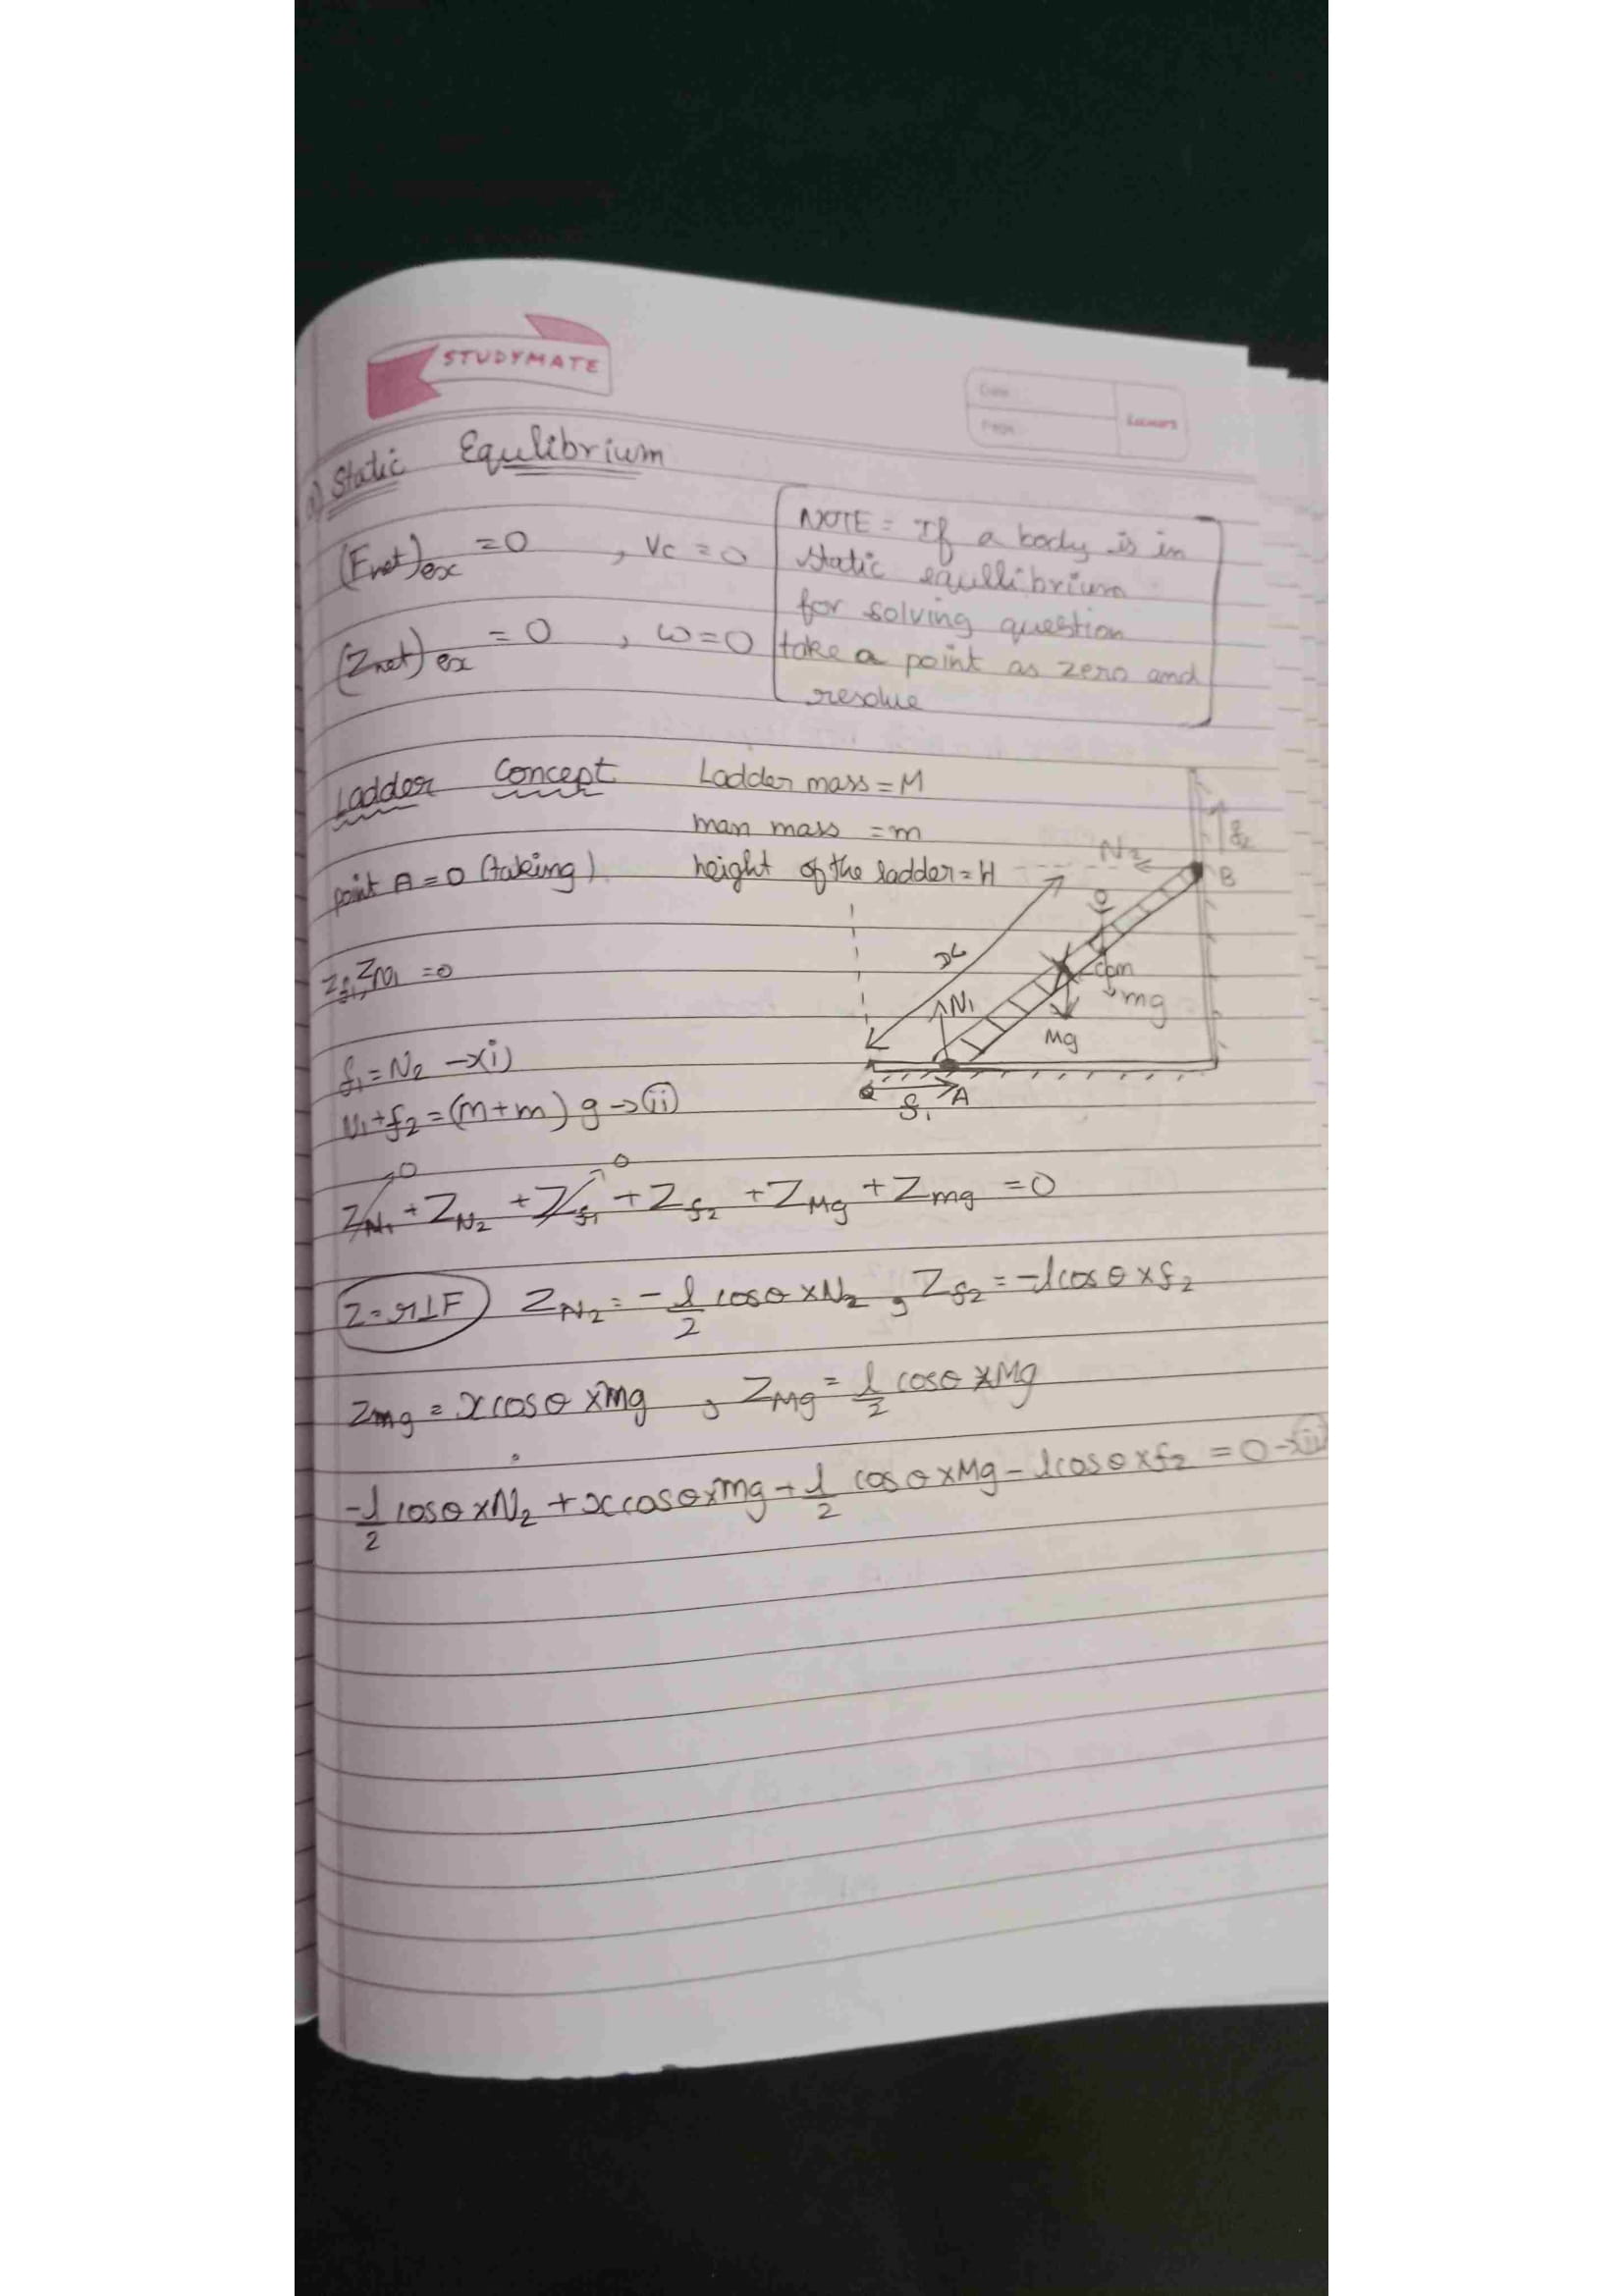 STUDYMATE
Date
Page
a) Static Equlibrium
(Fnet)ex = 0 , Vc = 0
(Znet)ex = 0 , ω = 0
NOTE = If a body is in
static equllibrium
for solving question
take a point as zero and
resolue
Ladder Concept Ladder mass = M
man mass = m
point A = 0 (taking) height of the ladder = H
N2
f2
B
x
com
mg
Mg
N1
f1
A
Zf1, ZN1 = 0
f1 = N2 → i)
N1 + f2 = (m+m) g → (ii)
0 0
ZN1 + ZN2 + Zf1 + Zf2 + ZMg + Zmg = 0
Z = r⊥F ZN2 = - l/2 cosθ × N2 , Zf2 = - l cosθ × f2
Zmg = x cosθ × mg , ZMg = l/2 cosθ × Mg
- l/2 cosθ × N2 + x cosθ × mg + l/2 cosθ × Mg - l cosθ × f2 = 0 →